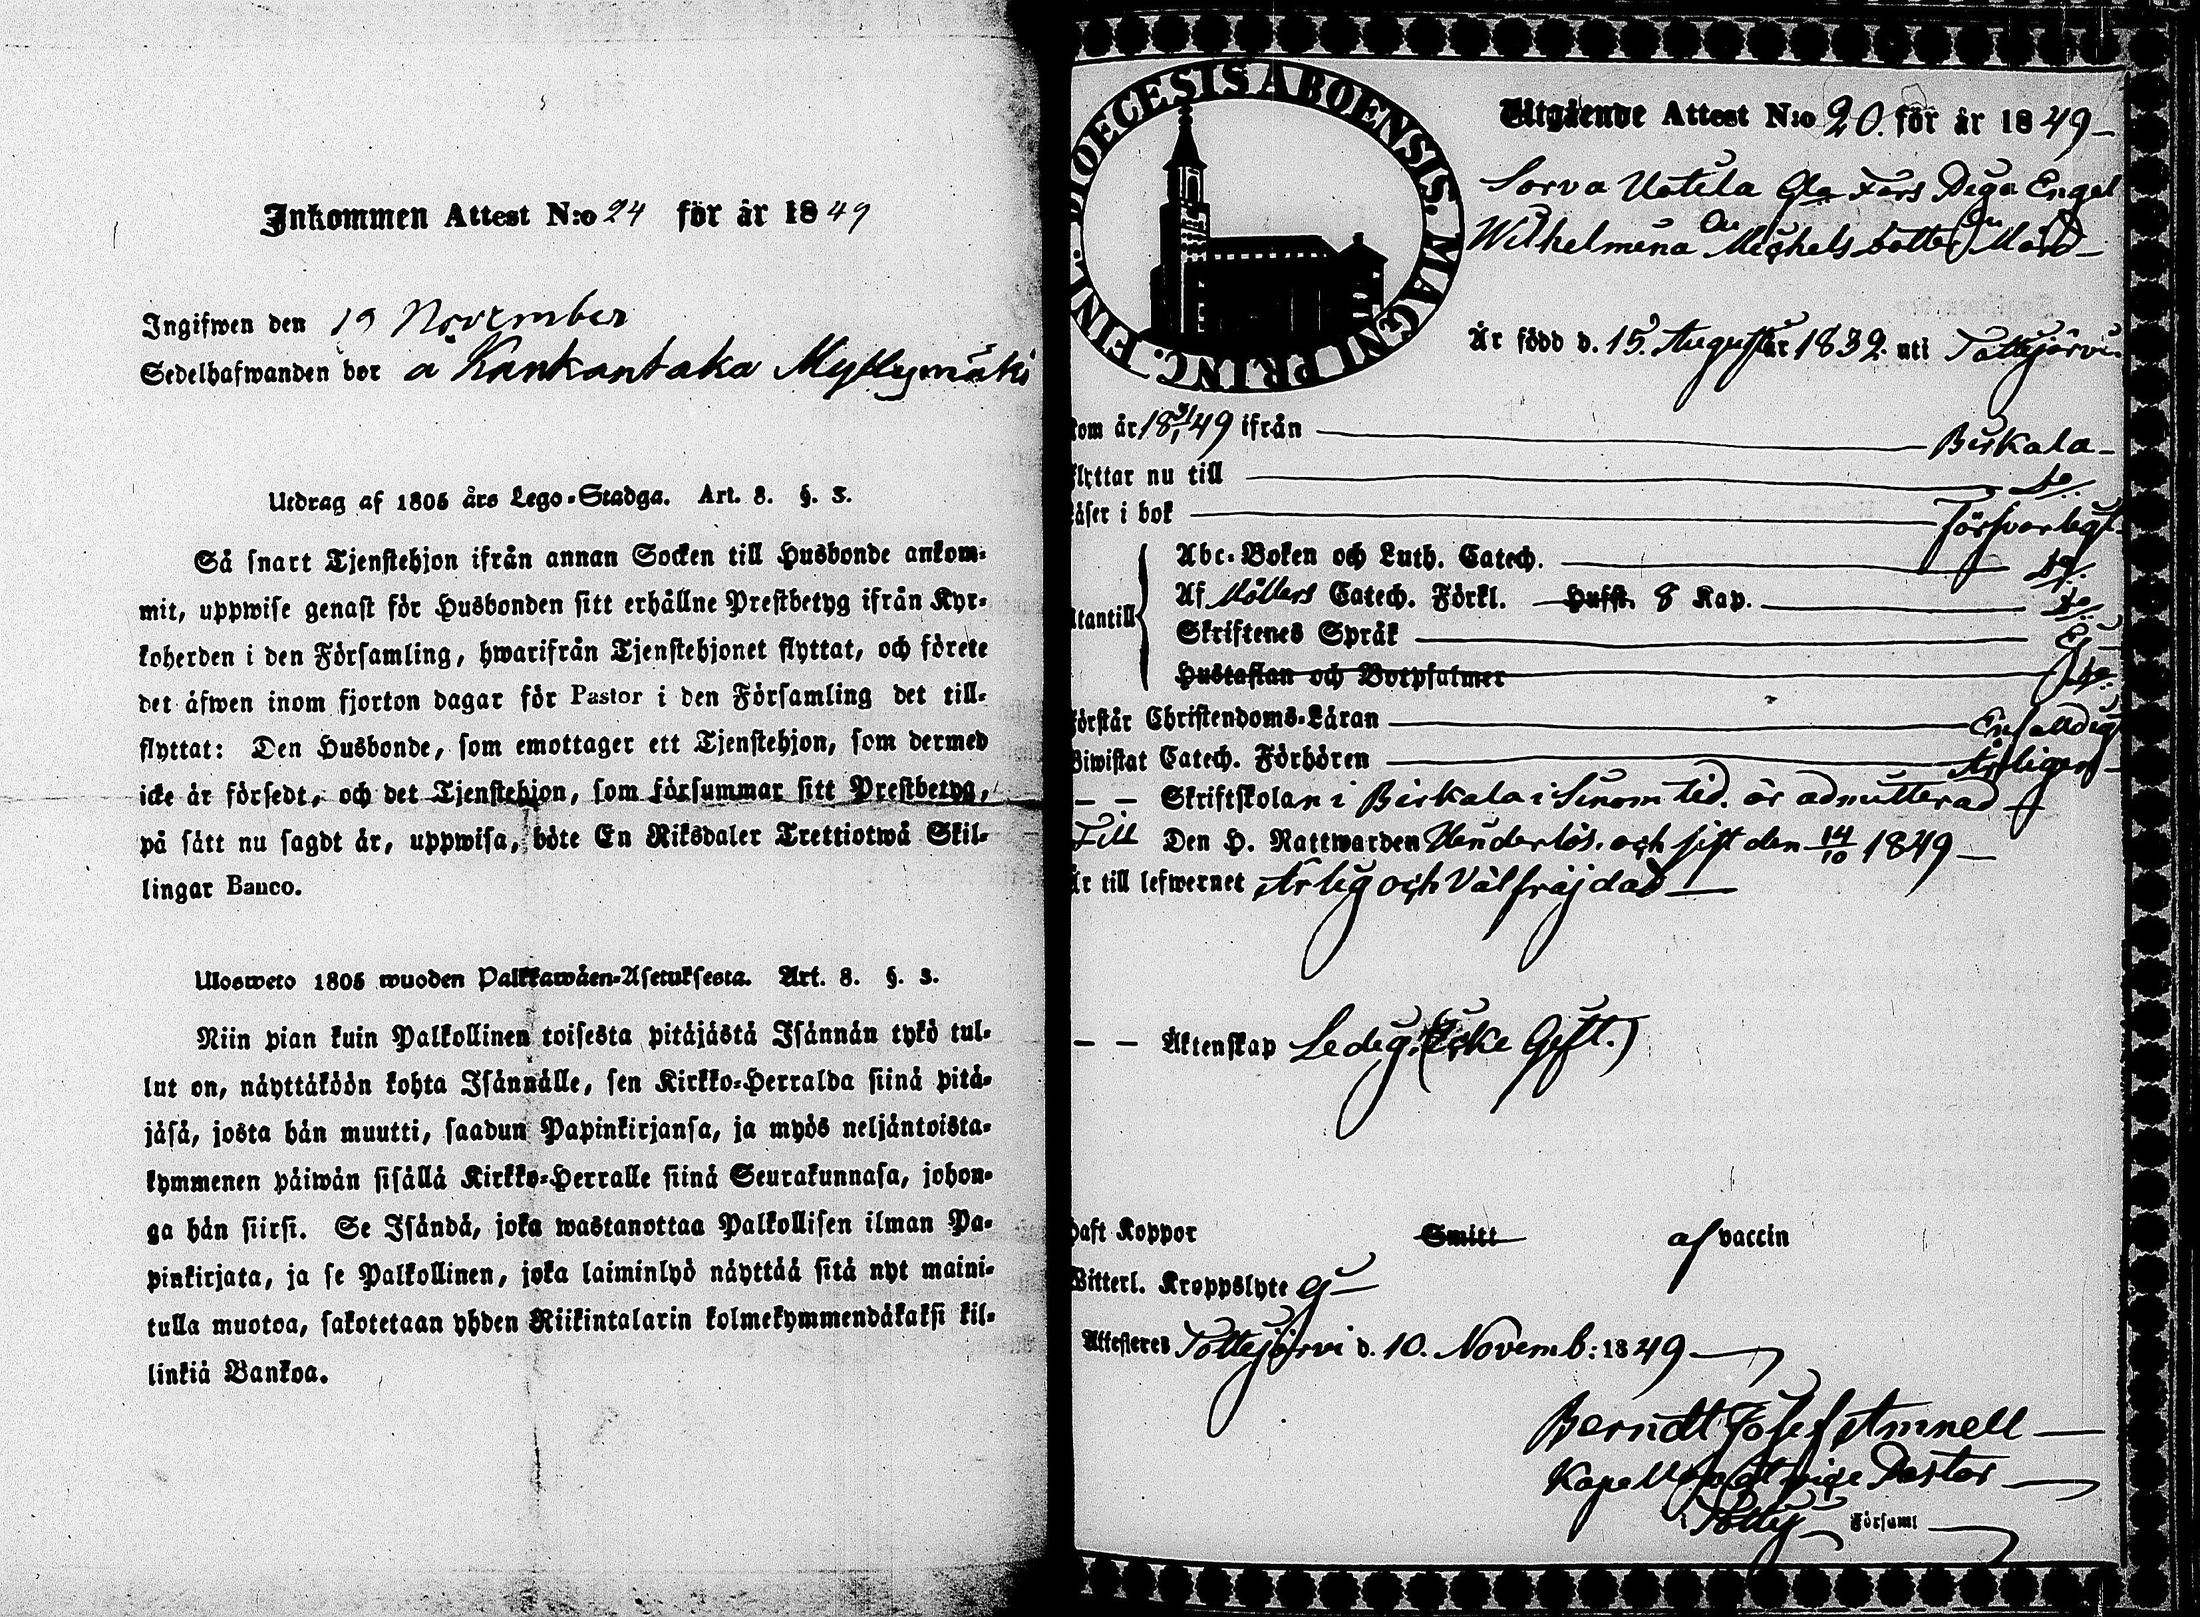 Inkommen Attest N:o 24 för år 1849
Ingifwen den 19 November
Sedelhafwanden bor å Kankantaka Myllymäki
Utdrag af 1805 års Lego-Stadga. Art. 8. §. 3.
Så snart Tjenstehjon ifrån annan Socken till Husbonde ankom-
mit, uppwise genast för Husbonden sitt erhållne Prestbetyg ifrån Kyr-
koherden i den Församling, hwarifrån Tjenstehjonet flyttat, och förete
det äfwen inom fjorton dagar för Pastor i den Församling det till-
flyttat: Den Husbonde, som emottager ett Tjenstehjon, som dermed
icke är försedt, och det Tjenstehjon, som försummar sitt Prestbetyg,
på sätt nu sagdt är, uppwisa, böte En Riksdaler Trettiotwå Skil-
lingar Banco.
Ulosweto 1805 wuoden Palkkawäen-Asetuksesta. Art. 8. §. 3.
Niin pian kuin Palkollinen toisesta pitäjästä Isännän tykö tul-
lut on, näyttäköön kohta Isännälle, sen Kirkko-Herralda siinä pitä-
jäsä, josta hän muutti, saadun Papinkirjansa, ja myös neljäntoista-
kymmenen päiwän sisällä Kirkko-Herralle siinä Seurakunnasa, johon-
ga hän siirsi. Se Isändä, joka wastanottaa Palkollisen ilman Pa-
pinkirjata, ja se Palkollinen, joka laiminlyö näyttää sitä nyt maini-
tulla muotoa, sakotetaan yhden Riikintalarin kolmekymmendäkaksi kil-
linkiä Bankoa.
DIOECESIS ABOENSIS. MAGNI PRINC. FINL.
Utgående Attest N:o 20. för år 1849
Sorva Uotila Engel
Wilhelmina Michels dotter
Är född d. 15. August år 1832. uti Tottijärvi
kom år 18 31/1 49 ifrån Birkala
flyttar nu till do
Läser i bok försvarligt
Utantill
Abc-Boken och Luth. Catech. do
Af Möllers Catech. Förkl. Hufst. 8 Kap. do
Skriftenes Språk Ej
Hustaflan och Botpsalmer do
förstår Christendoms-Läran Enfaldigt
Biwistat Catech. Förhören Årligen
Skriftskolan i Birkala i Sinom tid. är admitterad
Till Den H. Nattwarden Hinderlös. och sist den 14/10 1849
Är till lefwernet Ärlig och Välfräjdad
Äktenskap Ledig. (icke Gift.)
haft Koppor Smitt af vaccin
Witterl. Kroppslyte ej
Attesteres Tottijärvi d. 10. Novemb: 1849
Berndt Josef Amnell
Kapellan Pastor
i Tottij Församl